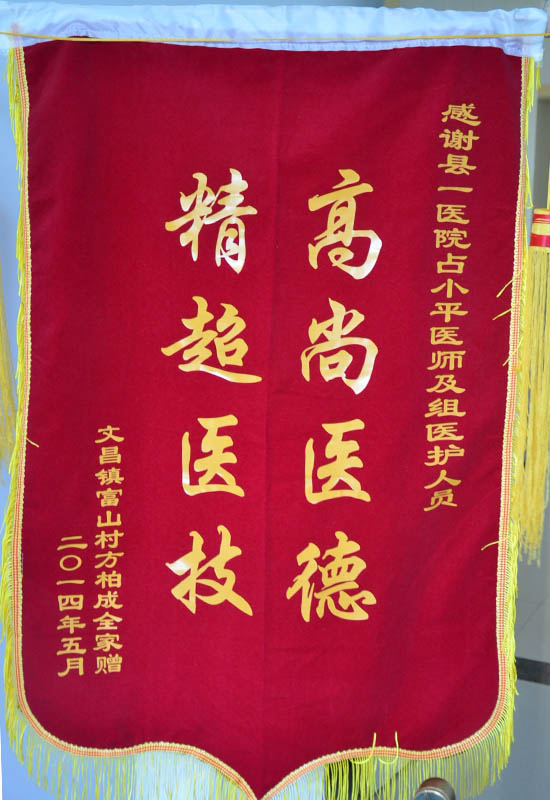 感谢县一医院占小平医师及组医护人员
高尚医德
精超医技
文昌镇富山村方柏成全家赠
二〇一四年五月